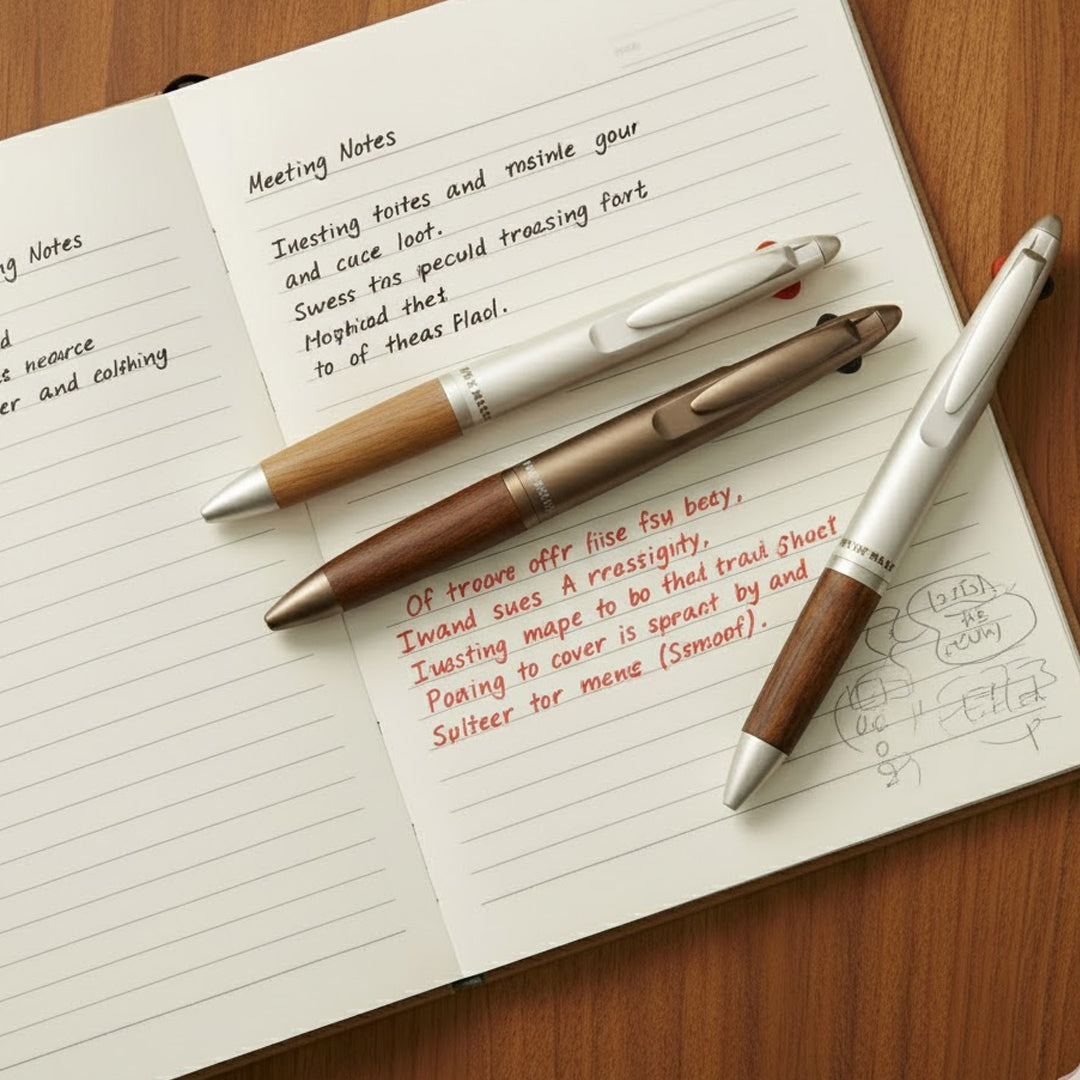 ng Notes
d
neoarce
er and colfhing
Meeting Notes
Inesting toites and msinle gour
and cuce loot.
Swess tas peculd troasing fart
thet
to of theas Flaol.
Of troove offr fiise fsu beay.
Iwand sues A rressigity,
Iuesting mape to bo that traui Shoet
Poaing to cover is sprant by and
Sulteer tor mene (Ssmoof).